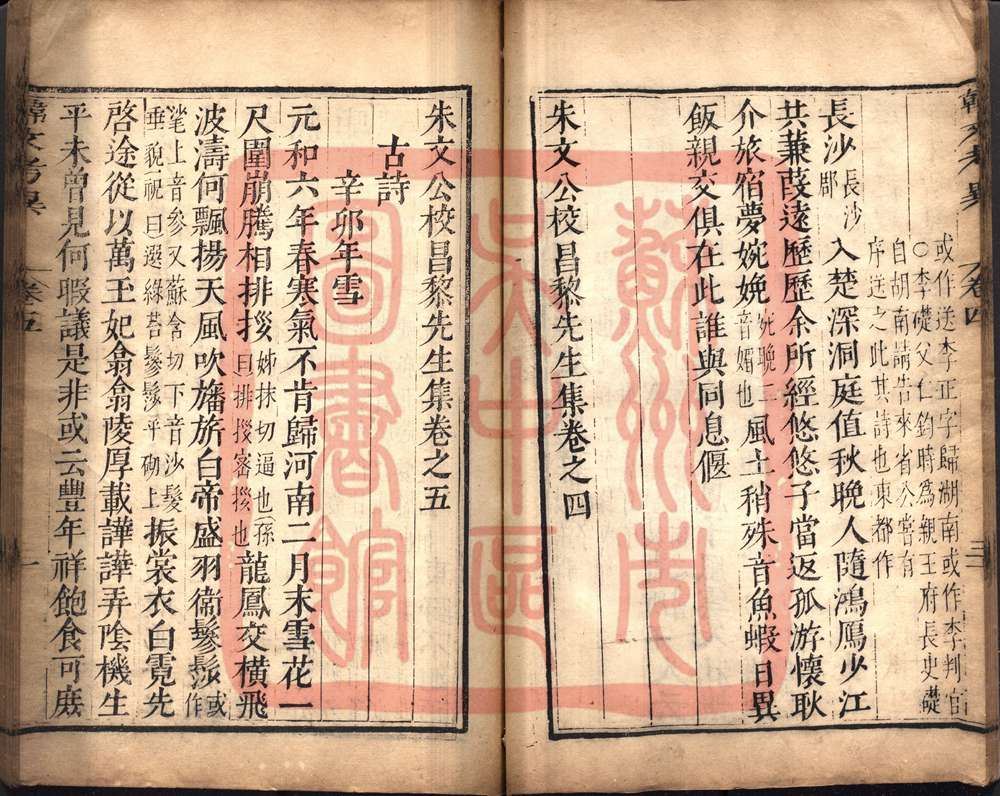 韓文考異 卷四 三二
或作送李正字歸湖南或作李判官
○李礎父仁鈞時為親王府長史礎
自胡南請告來省公嘗有
序送之此其詩也東都作
長沙長沙郡入楚深洞庭值秋晚人隨鴻鴈少江
共蒹葭遠歷歷余所經悠悠子當返孤游懷耿
介旅宿夢婉娩宛晚二音媚也風土稍殊音魚蝦日異
飯親交俱在此誰與同息偃
朱文公校昌黎先生集卷之四
朱文公校昌黎先生集卷之五
古詩
辛卯年雪
元和六年春寒氣不肯歸河南二月末雪花一
尺圍崩騰相排拶姊抹切逼也孫曰排拶密拶也龍鳳交橫飛
波濤何飄揚天風吹旛旂白帝盛羽衛鬖髿或作
毿上音參又蘇含切下音沙髮垂貌祝曰選綠苔鬖髿乎砌上振裳衣白霓先
啓途從以萬玉妃翕翕陵厚載譁譁弄陰機生
平未曾見何暇議是非或云豐年祥飽食可庶
韓文考異 卷五 一
蘇州市
吳中區
圖書館